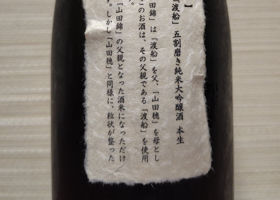 】
「渡船」五割磨き純米大吟醸酒 本生
「山田錦」は「渡船」を父、「山田穂」を母とし
このお酒は、その父親である「渡船」を使用
。
「山田錦」の父親となった酒米になっただけ
。しかし「山田穂」と同様に、粒状が整った